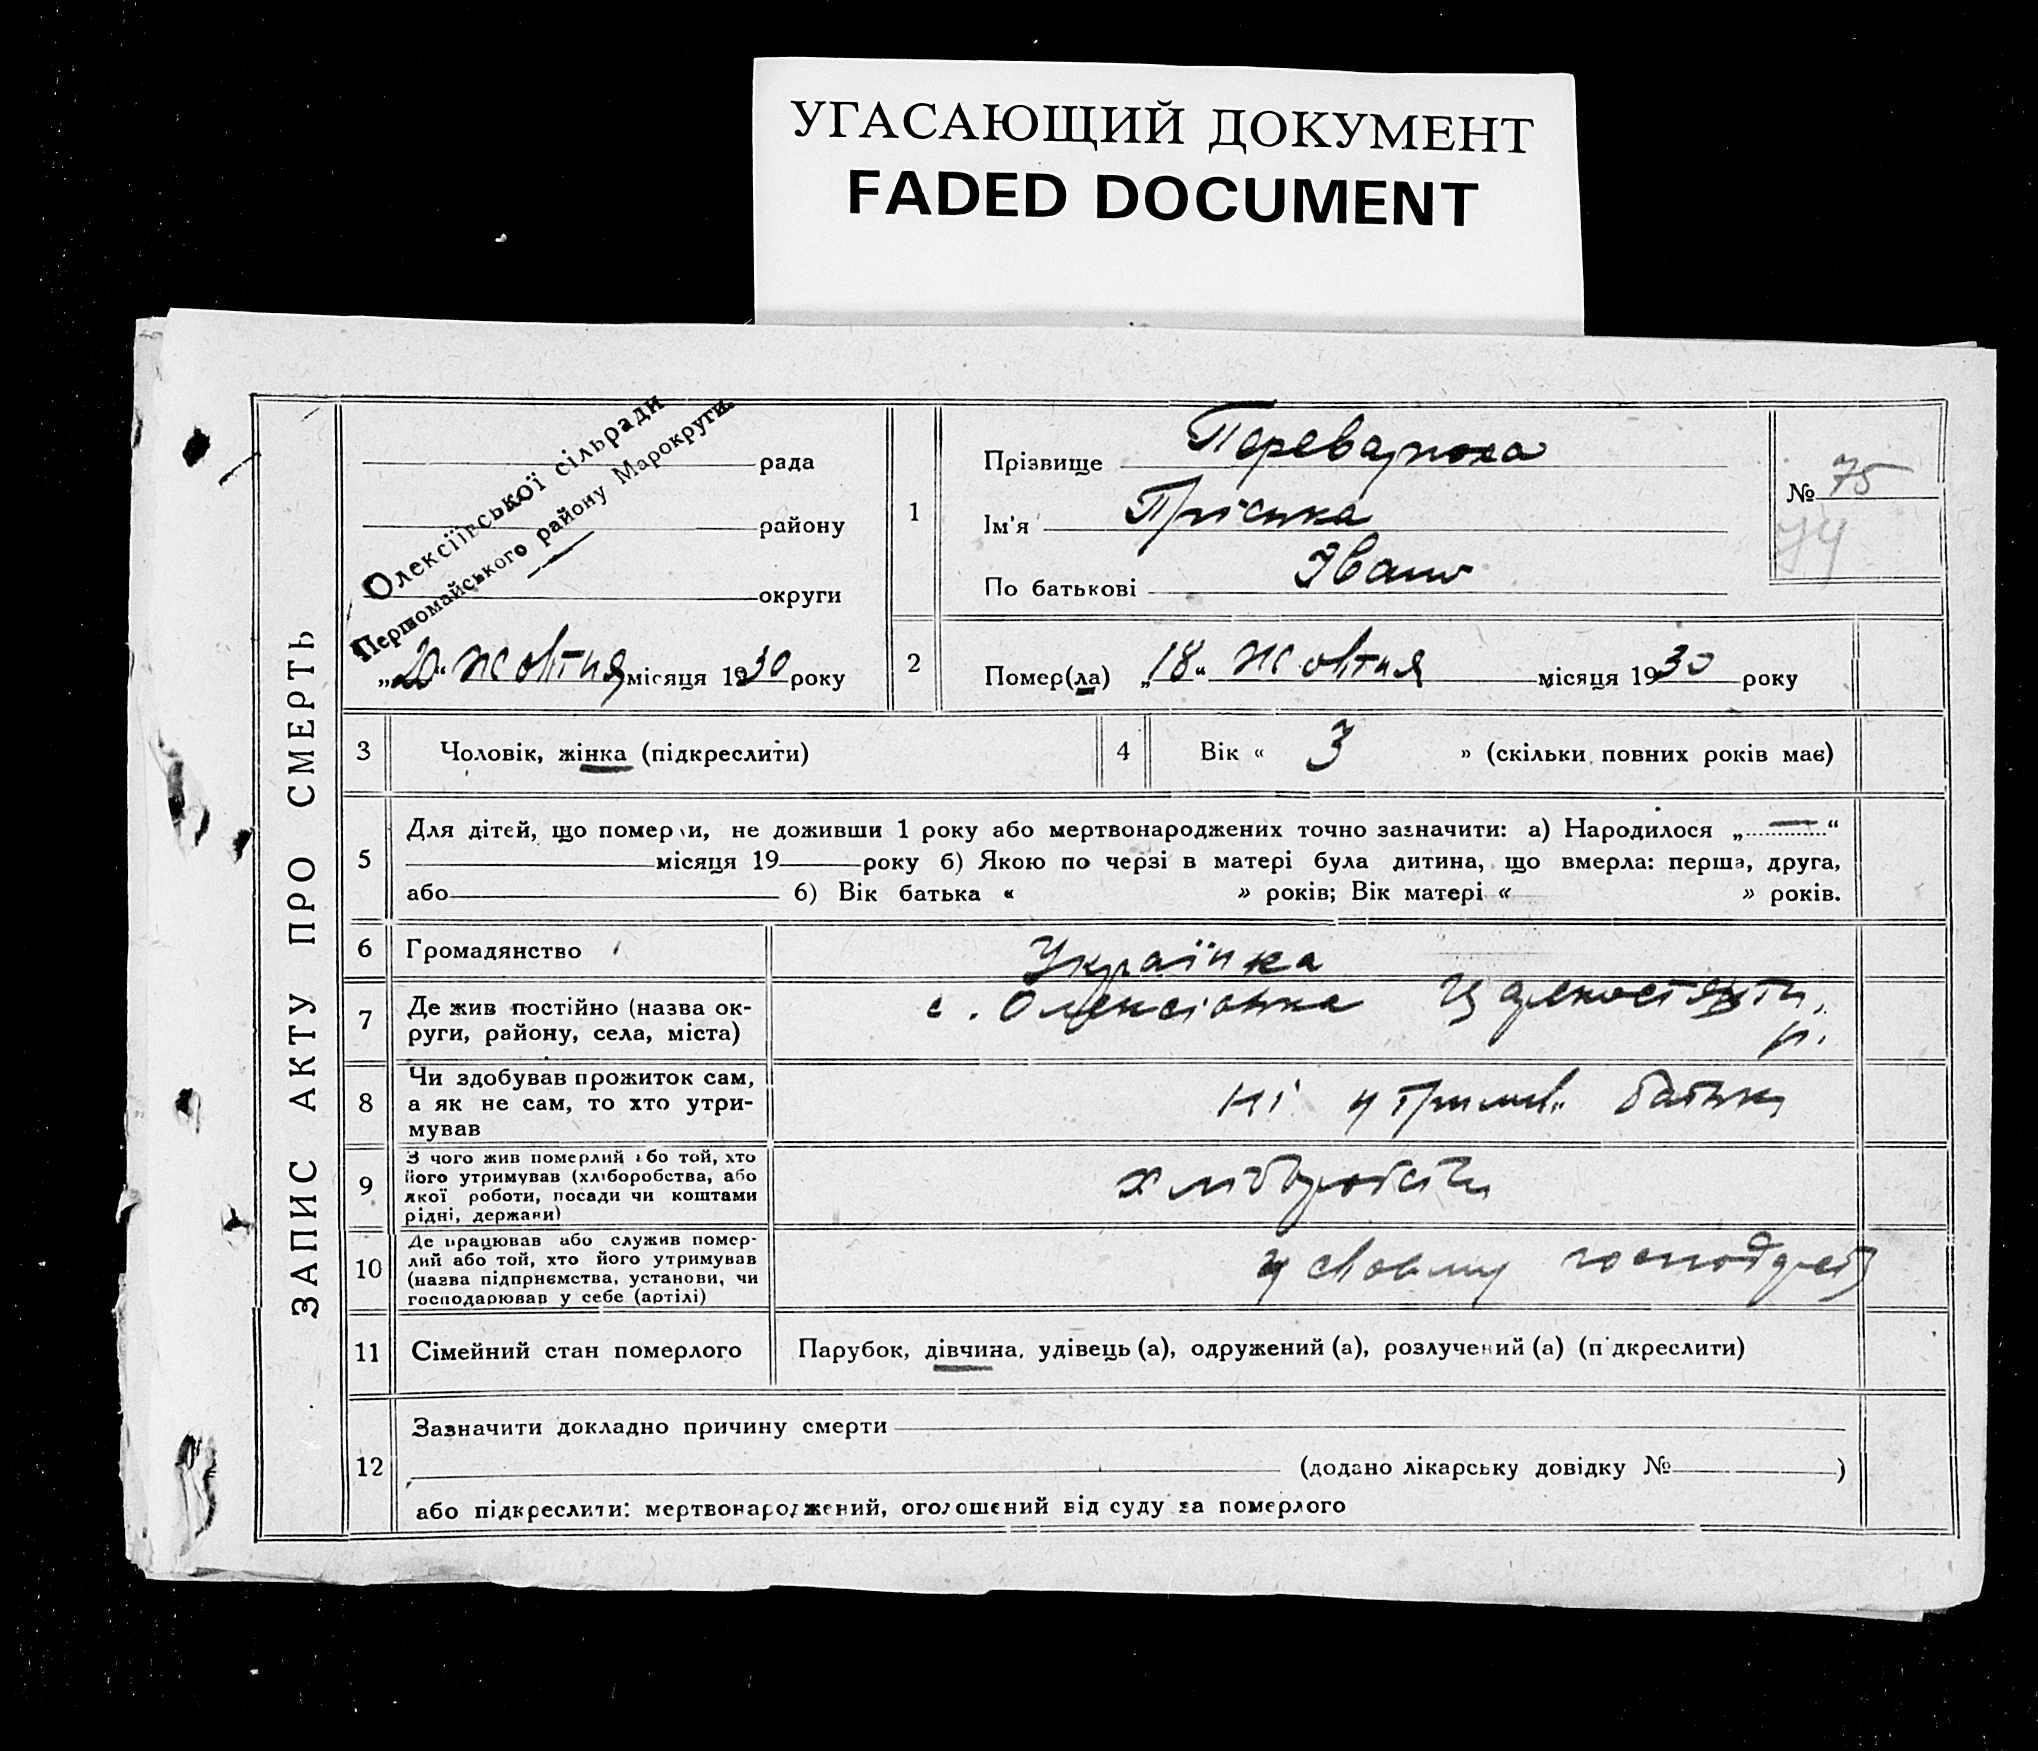 УГАСАЮЩИЙ ДОКУМЕНТ
FADED DOCUMENT
ЗАПИС АКТУ ПРО СМЕРТЬ
Олексіївської сільради
Первомайського району Марокруги.
рада
району
округи
„20“ жовтня місяця 1930 року
1
Прізвище
Ім'я Пріська
По батькові Іван
№ 75
74
2
Помер(ла) „18“ жовтня місяця 1930 року
3 Чоловік, жінка (підкреслити)
4 Вік « 3 » (скільки повних років має)
5
Для дітей, що померли, не доживши 1 року або мертвонароджених точно зазначити: а) Народилося „—“
місяця 19 року б) Якою по черзі в матері була дитина, що вмерла: перша, друга,
або б) Вік батька « » років; Вік матері « » років.
6 Громадянство Українка
7
Де жив постійно (назва ок-
руги, району, села, міста)
с. Олексіівка
р.
8
Чи здобував прожиток сам,
а як не сам, то хто утри-
мував
ні утримув. батьки
9
З чого жив померлий або той, хто
його утримував (хліборобства, або
якої роботи, посади чи коштами
рідні, держави)
10
Де працював або служив помер-
лий або той, хто його утримував
(назва підприємства, установи, чи
господарював у себе (артілі)
у своєму
11 Сімейний стан померлого Парубок, дівчина, удівець (а), одружений (а), розлучений (а) (підкреслити)
12
Зазначити докладно причину смерти
(додано лікарську довідку № )
або підкреслити: мертвонароджений, оголошений від суду за померлого